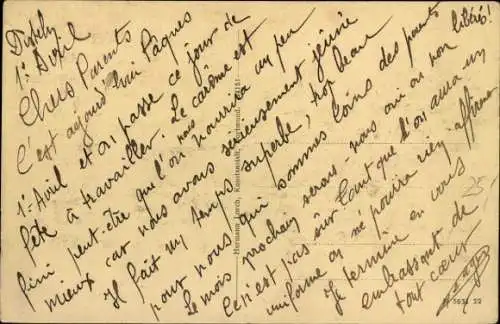 1er Avril
Chers Parents
C'est aujourd'hui Pâques
1er Avril et on passe ce jour de
fête à travailler. Le carême est
fini peut-être qu'on nous nourrira un peu
mieux car nous avons sérieusement jeûné
Il fait un temps superbe, trop beau
pour nous qui sommes loin des parents
le mois prochain serons-nous oui ou non libéré!
ce n'est pas sûr tant que l'on aura un
uniforme on ne pourra rien affirmer
Je termine en vous
embrassant de
tout cœur
25
5634 22